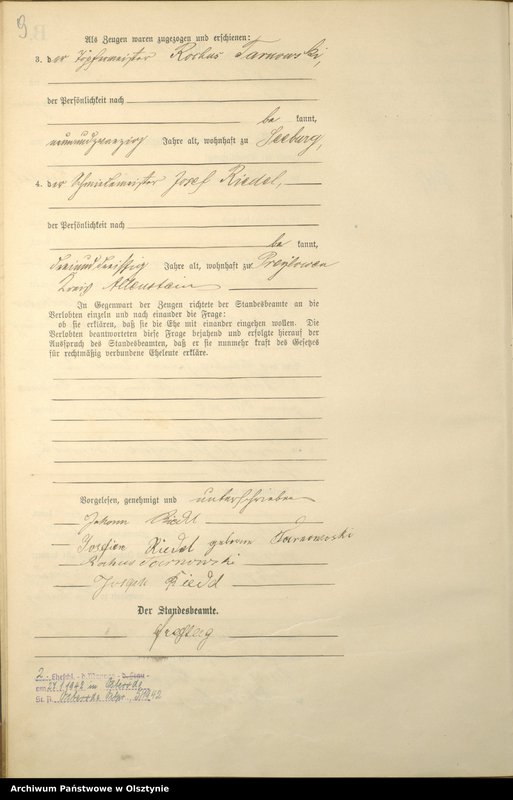 9.
Als Zeugen waren zugezogen und erschienen:
3. der Töpfermeister Rochus Tarnowski,
der Persönlichkeit nach
be kannt,
neunundzwanzig Jahre alt, wohnhaft zu Seeburg,
4. der Schmiedemeister Josef Riedel,
der Persönlichkeit nach
be kannt,
dreiunddreißig Jahre alt, wohnhaft zu Preylowen
Kreis Allenstein
In Gegenwart der Zeugen richtete der Standesbeamte an die
Verlobten einzeln und nach einander die Frage:
ob sie erklären, daß sie die Ehe mit einander eingehen wollen. Die
Verlobten beantworteten diese Frage bejahend und erfolgte hierauf der
Ausspruch des Standesbeamten, daß er sie nunmehr kraft des Gesetzes
für rechtmäßig verbundene Eheleute erkläre.
Vorgelesen, genehmigt und unterschrieben
Johann Riedel
Riedel geborene Tarnowski
Rochus Tarnowski
Joseph Riedel
Der Standesbeamte.
Freytag
2. Eheschl. d. Mannes - d. Frau -
am 1942 in Osterode
St. A. Osterode Ostpr.
Archiwum Państwowe w Olsztynie